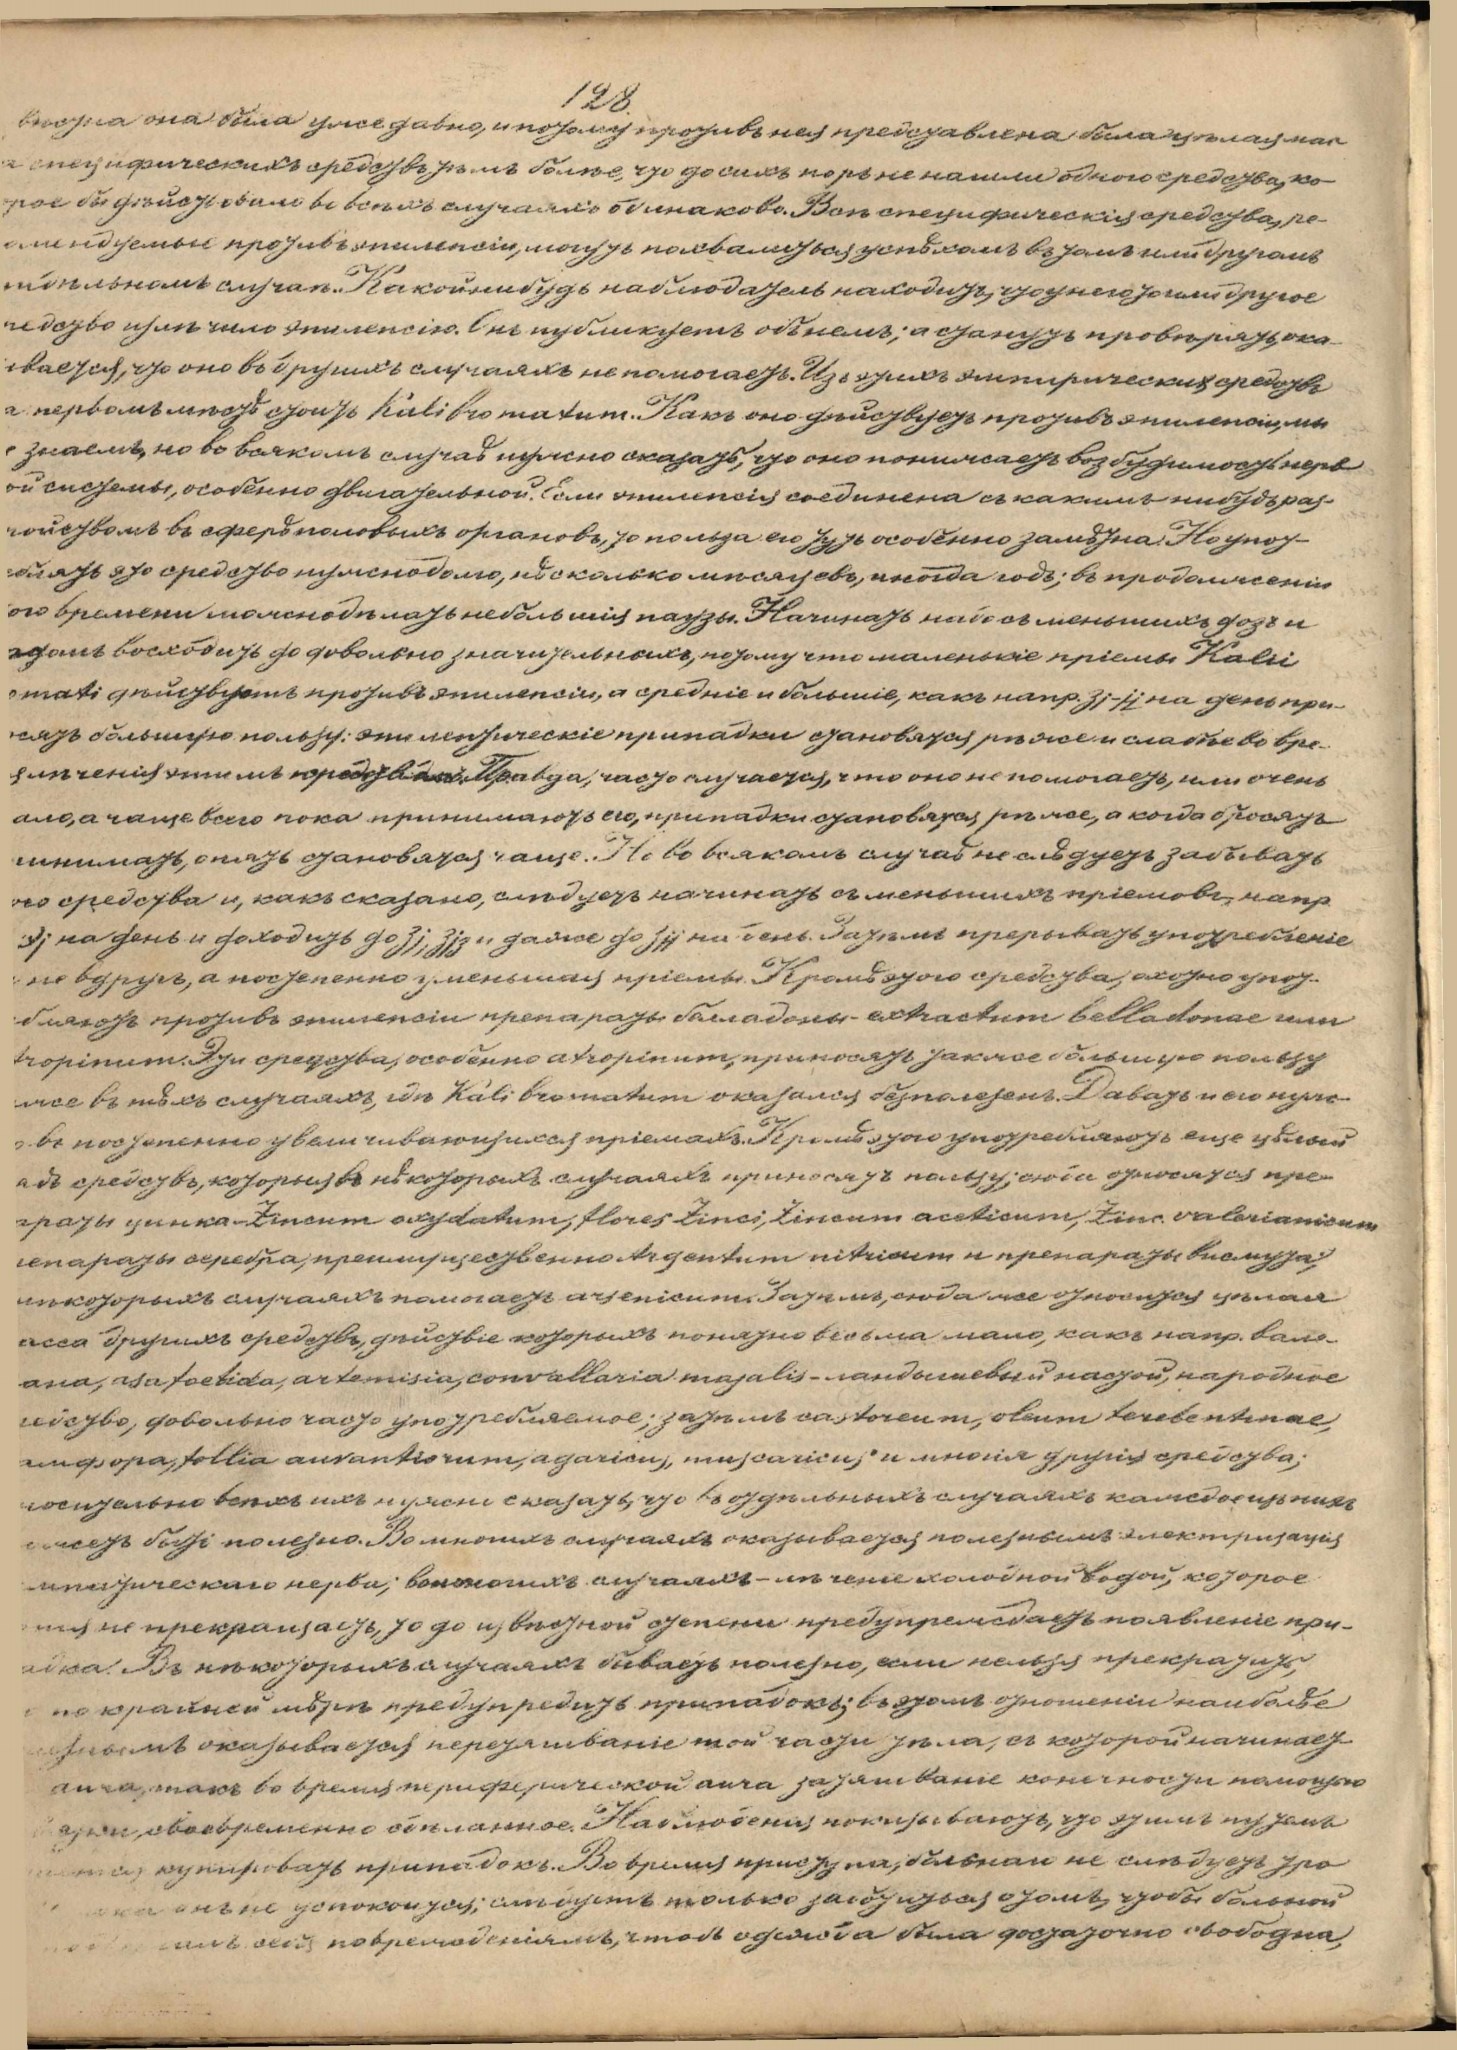 128.
вѣстна она была уже давно, и потому противъ нея представлена была цѣлая мас
а специфическихъ средствъ, тѣмъ болѣе, что до сихъ поръ не нашли одного средства, ко-
рое бы дѣйствовало во всѣхъ случаяхъ одинаково. Всѣ специфическія средства, ре-
омендуемые противъ эпилепсіи, могутъ похвалиться успѣхомъ въ томъ или другомъ
тдѣльномъ случаѣ. Какой нибудь наблюдатель находитъ, что у него то или другое
редство излѣчило эпилепсію. Онъ публикуетъ объ немъ; а станутъ провѣрять, ока-
ывается, что оно въ другихъ случаяхъ не помогаетъ. Изъ этихъ эмпирическихъ средствъ
а первомъ мѣстѣ стоитъ Kali bromatum. Какъ оно дѣйствуетъ противъ эпилепсіи, мы
е знаемъ, но во всякомъ случаѣ нужно сказать, что оно понижаетъ возбудимость нерв
ой системы, особенно двигательной. Если эпилепсія соединена съ какимъ нибудь раз-
ройствомъ въ сферѣ половыхъ органовъ, то польза его тутъ особенно замѣтна. Но упот-
облять это средство нужно долго, нѣсколько мѣсяцевъ, иногда годъ; въ продолженіи
ого времени можно дѣлать небольшія паузы. Начинать надо съ меньшихъ дозъ и
ядомъ восходить до довольно значительныхъ, потому что маленькіе пріемы Kalii
omati дѣйствуютъ противъ эпилепсіи, а средніе и большіе, какъ напр. ʒj-ij на день при-
осятъ большую пользу: эпилептическіе припадки становятся рѣже и слабѣе во вре-
я лѣченія этимъ средствомъ. Правда, часто случается, что оно не помогаетъ, или очень
ало, а чаще всего пока принимаютъ его, припадки становятся рѣже, а когда бросятъ
инимать, опять становятся чаще. Но во всякомъ случаѣ не слѣдуетъ забывать
ого средства и, какъ сказано, слѣдуетъ начинать съ меньшихъ пріемовъ, напр
Эj на день и доходить до ʒj, ʒjʒ и даже до ʒij на день. Затѣмъ прерывать употребленіе
не вдругъ, а постепенно уменьшая пріемы. Кромѣ этого средства, охотно упот-
бляютъ противъ эпилепсіи препараты белладоны - extractum belladonae или
tropinum. Эти средства, особенно atropinum, приносятъ также большую пользу
же въ тѣхъ случаяхъ, гдѣ Kali bromatum оказался безполезенъ. Давать и его нуж-
о въ постепенно увеличивающихся пріемахъ. Кромѣ этого употребляютъ еще цѣлый
ядъ средствъ, которыя въ нѣкоторыхъ случаяхъ приносятъ пользу; сюда относятся пре-
араты цинка - Zincum oxydatum, flores Zinci, Zincum aceticum, Zinc. valerianicum
репараты серебра, преимущественно Argentum nitricum и препараты висмута;
нѣкоторыхъ случаяхъ помогаетъ arsenicum. Затѣмъ, сюда же относится цѣлая
асса другихъ средствъ, дѣйствіе которыхъ понятно весьма мало, какъ напр. вале-
ана, asa foetida, artemisia, convallaria majalis - ландышевый настой, народное
редство, довольно часто употребляемое; затѣмъ castoreum, oleum terebentinae,
амфора, follia aurantiorum, agaricus, muscaricus и многія другія средства;
носительно всѣхъ ихъ нужно сказать, что въ отдѣльныхъ случаяхъ каждое изъ нихъ
ожетъ быть полезно. Во многихъ случаяхъ оказывается полезнымъ электризація
мпатическаго нерва; во многихъ случаяхъ - лѣченіе холодной водой, которое
не прекращаетъ, то до извѣстной степени предупреждаетъ появленіе при-
адка. Въ нѣкоторыхъ случаяхъ бываетъ полезно, если нельзя прекратить,
по крайней мѣрѣ предупредить припадокъ; въ этомъ отношеніи наиболѣе
езнымъ оказывается перетягиваніе той части тѣла, съ которой начинает
аура, такъ во время периферической аура затягиваніе конечности помощью
своевременно сдѣланное. Наблюденія показываютъ, что этимъ путемъ
купировать припадокъ. Во время приступа, больнаго не слѣдуетъ тро
пока онъ не успокоится; слѣдуетъ только заботиться о томъ, чтобы больной
себя поврежденіямъ, чтобъ одежда была достаточно свободна,